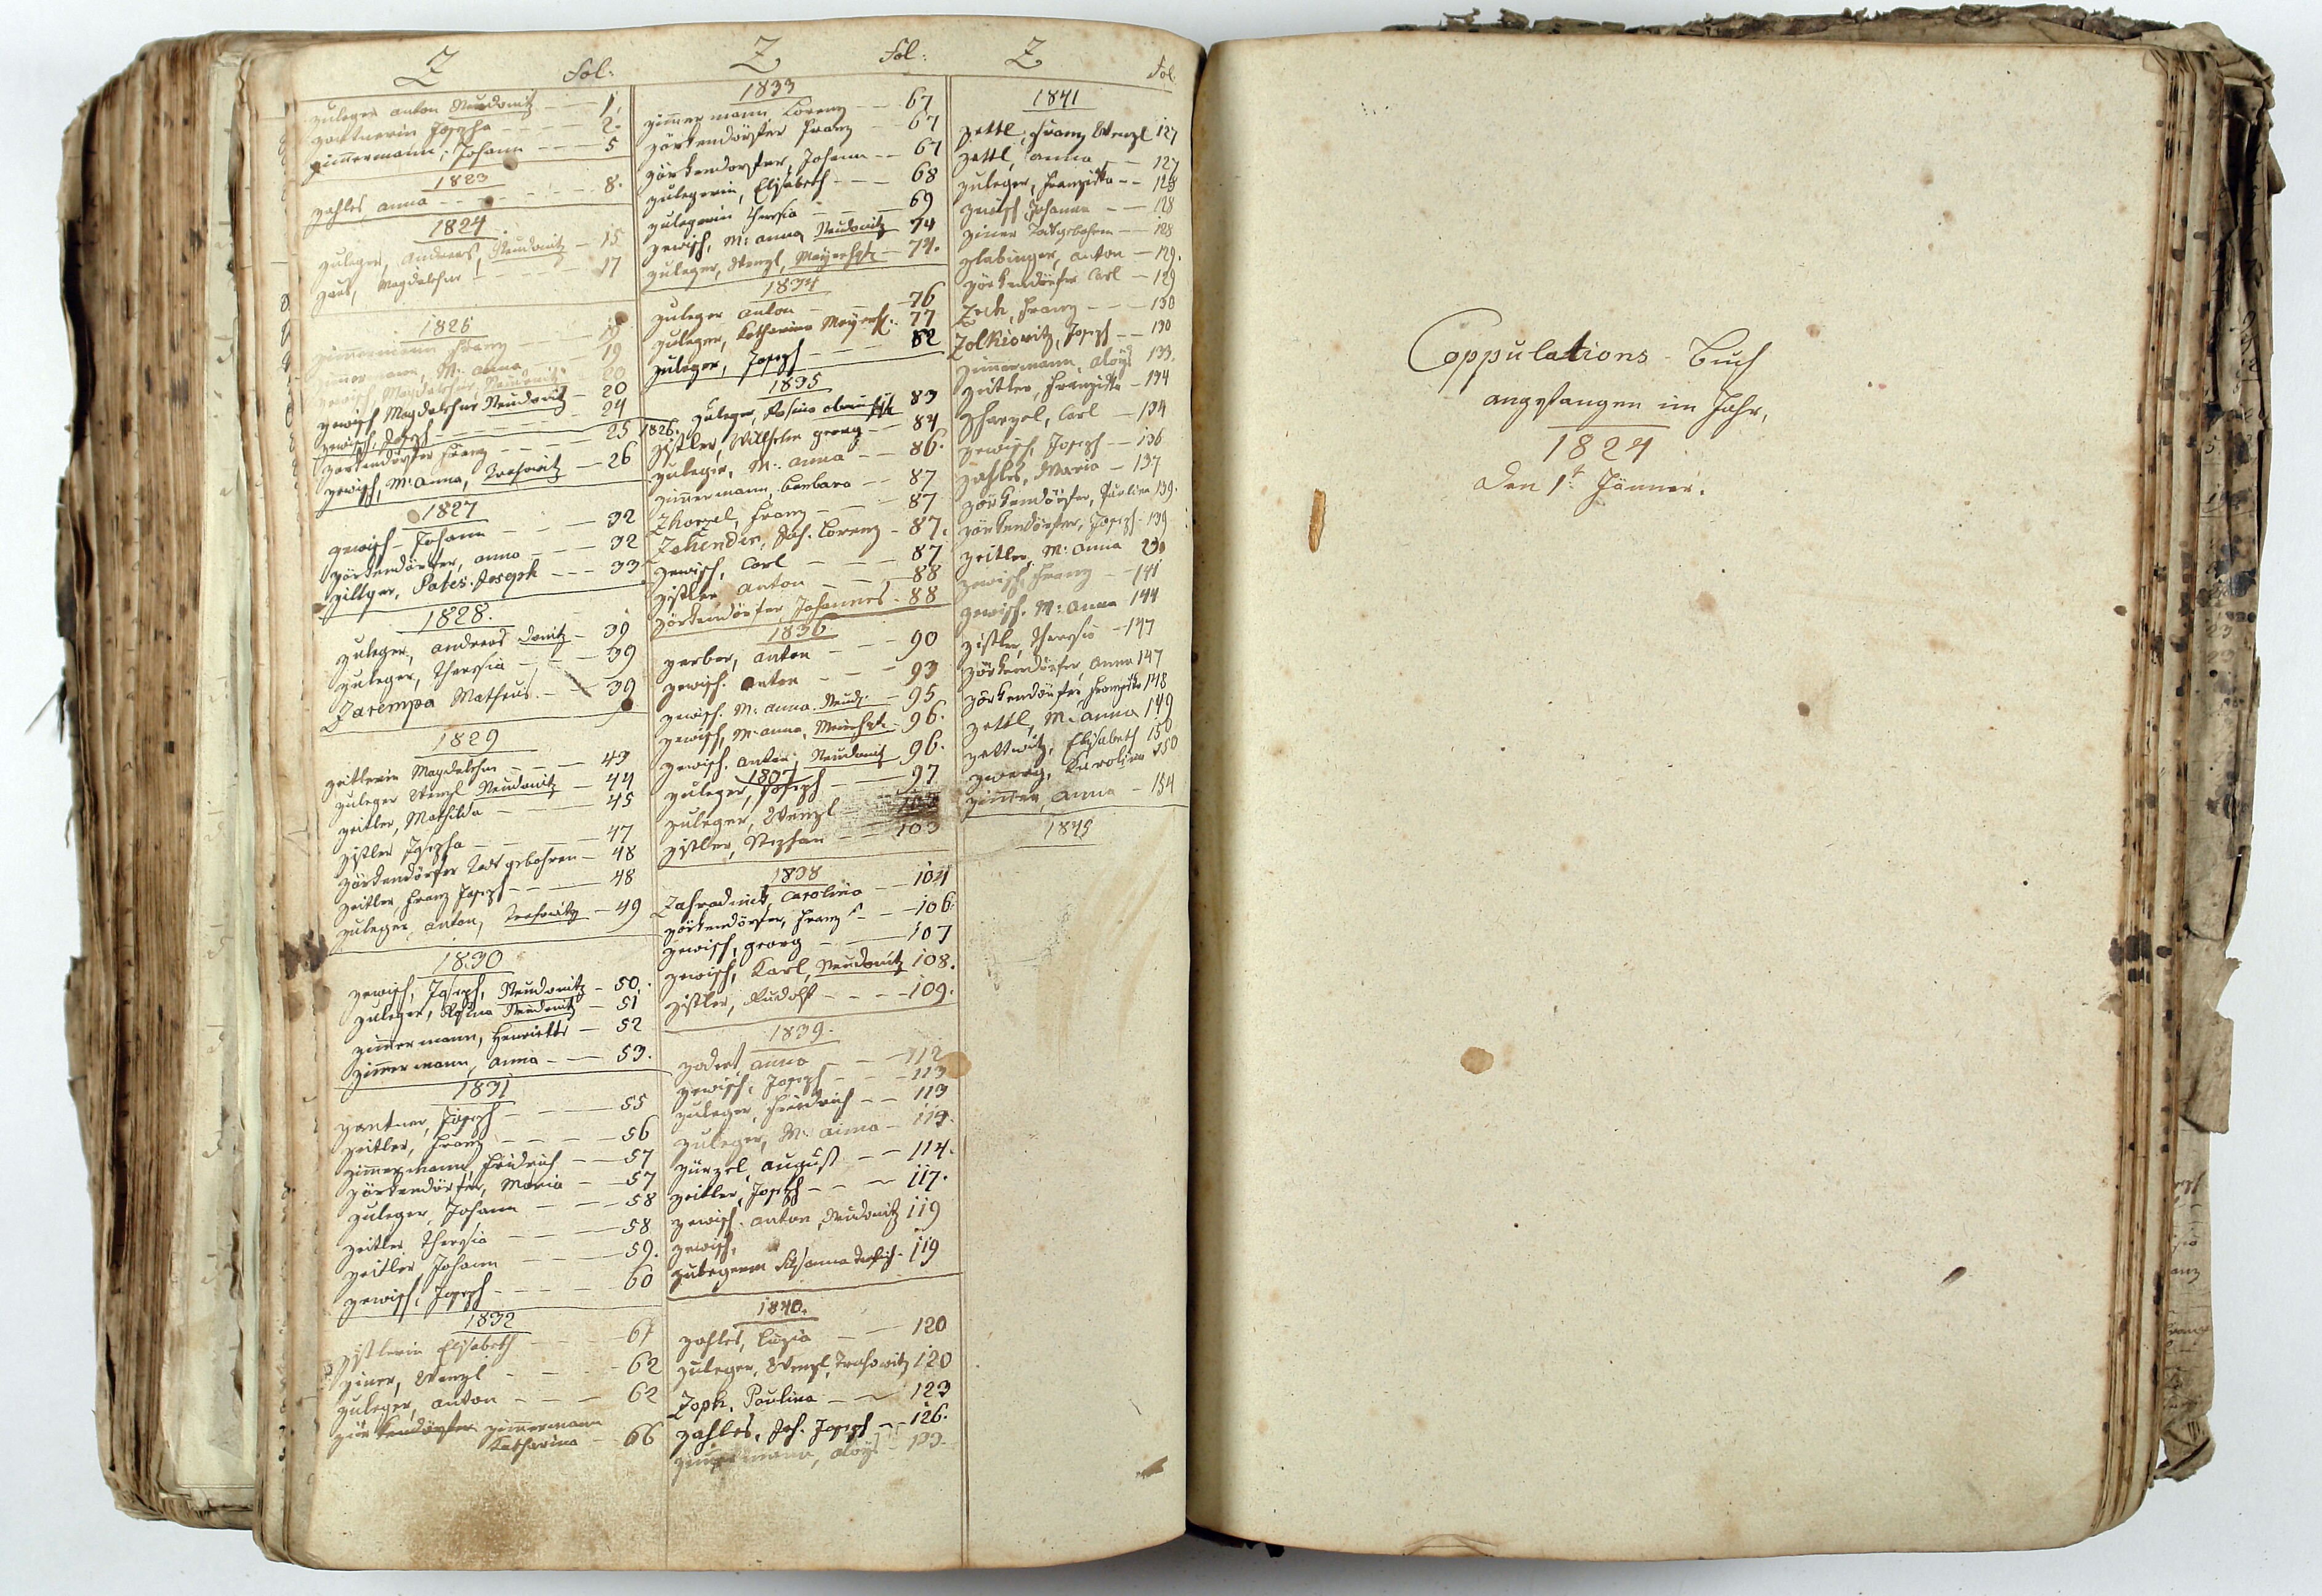 Z Fol:
Zuleger Anton Neudonitz 1.
Zartnerin Josepha 2.
Zimmermann, Johann 5
1823
Zahles, Anna 8.
1824
Zuleger, Andreas, Neudonitz 15
Magdalena 17
1825
Zimmermann Franz 19
Zimmermann, M: Anna 19
Zewisch, Magdalena Neudonitz 20
Zewisch Magdalena Neudonitz 20
Zewisch, Joseph 24
Zörkendörfer Franz 25 1826.
Zewisch, M: Anna, 26
1827
Zewisch Johann 32
Zörkendörfer, Anna 32
Zillger, Pates. Joseph 33
1828.
Zuleger, Andreas Donitz 39
Zuleger, Theresia 39
Zarempa Matheus. 39
1829
Zeitlerin Magdalena 43
Zuleger Wenzl Neudonitz 44
Zeitler, Mathilda 45
Zistler Josepha 47
Zörkendörfer Todtgebohren 48
Zeitler, Franz Joseph 48
Zuleger Anton, 49
1830
Zewisch, Joseph, Neudonitz 50.
Zuleger, Rosina Neudonitz 51
Zimmermann, Henriette 52
Zimmermann, Anna 53.
1831
Zartner, Joseph 55
Zeitler, Franz 56
Zimmermann, Fridrich 57
Zörkendörfer, Maria 57
Zuleger, Johann 58
Zeitler Theresia 58
Zeitler Johann 59.
Zewisch, Joseph 60
1832
Zistlerin Elisabeth 61
Ziner, Wenzl 62
Zuleger, Anton 62
Zörkendörfer Zimmermann
Katharina 66
Z Fol:
1833
Zimmermann, Lorenz 67
Zörkendörfer Franz 67
Zörkendorfer, Johann 67
Zulegerin, Elisabeth 68
Zulegerin Theresia 69
Zewisch, M: Anna Neudonitz 74
Zuleger, Wenzl, 74.
1834
Zuleger Anton 76
Zuleger, Katharina 77
Zuleger, Joseph 82
1835
Zuleger, Rosina 83
Zistler, Wilhelm Georg 84
Zuleger, M: Anna 86.
Zimmermann, Barbara 87
Zhorzel, Franz 87
Zehender, Joh. Lorenz 87.
Zewisch, Carl 87
Zistler Anton 88
Zörkendörfer Johannes 88
1836
Zerber, Anton 90
Zewisch. Anton 93
Zewisch. M: Anna. Neud: 95
Zewisch, M: Anna, 96.
Zewisch. Anton, Neudonitz 96.
1837
Zuleger, Joseph 97
Zuleger, Wenzl
Zistler, Stephan 103
1838
Zahradnick, Carolina 104
Zörkendörfer, Franz 106.
Zewisch, Georg 107
Zewisch, Karl, Neudonitz 108.
Zistler, Rudolf 109.
1839.
Anna 112
Zewisch, Joseph 113
Zuleger, Friedrich 113
Zuleger, M: Anna 114.
August 114.
Zeitler, Joseph 117.
Zewisch. Anton, Neudonitz 119
Zewisch,
119
1840.
Zahles, Luzia 120
Zuleger, Wenzl, 120
Zoph, Paulina 123
Zahles, Joh. Joseph 126.
Zimmermann, Aloys 133.
Z Fol:
1841
Zettl, Franz Wenzl 127
Zettl, Anna 127
Zuleger, Franziska 128
Zewisch Johanna 128
Ziner Todtgebohren 128
Anton 129.
Zörkendörfer Carl 129
Zech, Franz 130
Zolkiowitz, Joseph 130
Zimmermann, Aloys 133.
Franziska 134
Carl 134
Zewisch, Joseph 136
Zahles, Maria 137
Zörkendörfer, Paulina 139.
Zörkendörfer, Joseph 139
Zeitler, M: Anna
Zewisch, Franz 141
Zewisch. M: Anna 144
Zistler, Theresia 147
Zörkendörfer, Anna 147
Zörkendörfer Franziska 148
Zettl, M: Anna 149
Zettwitz, Elisabeth 150
Zwerg, Karolina 150
Anna 154
1845
Coppulations Buch
angefangen im Jahr,
1824
den 1t. Jänner.